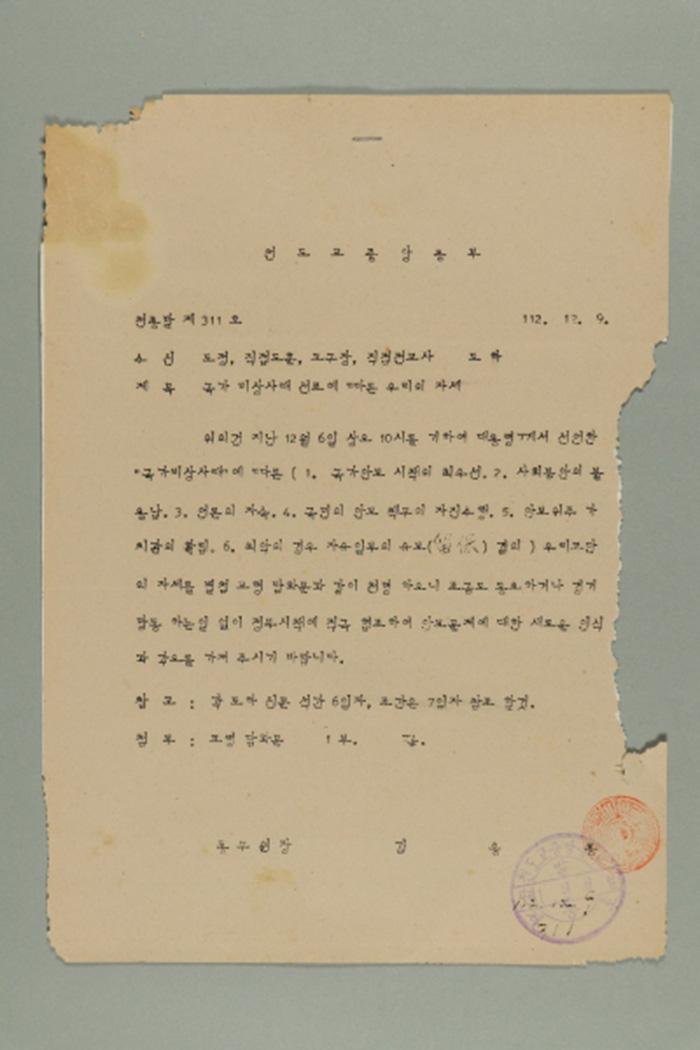 천 도 교 중 앙 총 부
천총발 제 311 호 112. 12. 9.
수 신 도정, 직접도훈, 교구장, 직접전교사 도 하
제 목 국가 비상사태 선포에 따른 우리의 자세
위의건 지난 12월 6일 상오 10시를 기하여 대통령께서 선언한
"국가비상사태"에 따른 ( 1. 국가안보 시책의 최우선. 2. 사회불안의 불
용납. 3. 언론의 자숙. 4. 국민의 안보 책무의 자진수행. 5. 안보위주 가
치관의 확립. 6. 최악의 경우 자유일부의 유보(留保) 결의 ) 우리교단
의 자세를 별첨 교령 담화문과 같이 천명 하오니 조금도 동요하거나 경거
망동 하는일 없이 정부시책에 적극 협조하여 안보문제에 대한 새로운 인식
과 각오를 가져 주시기 바랍니다.
참 고 : 각 도하 신문 석간 6일자, 조간은 7일자 참조 할것.
첨 부 : 교령 담화문 1 부. 끝.
종무원장 김
311